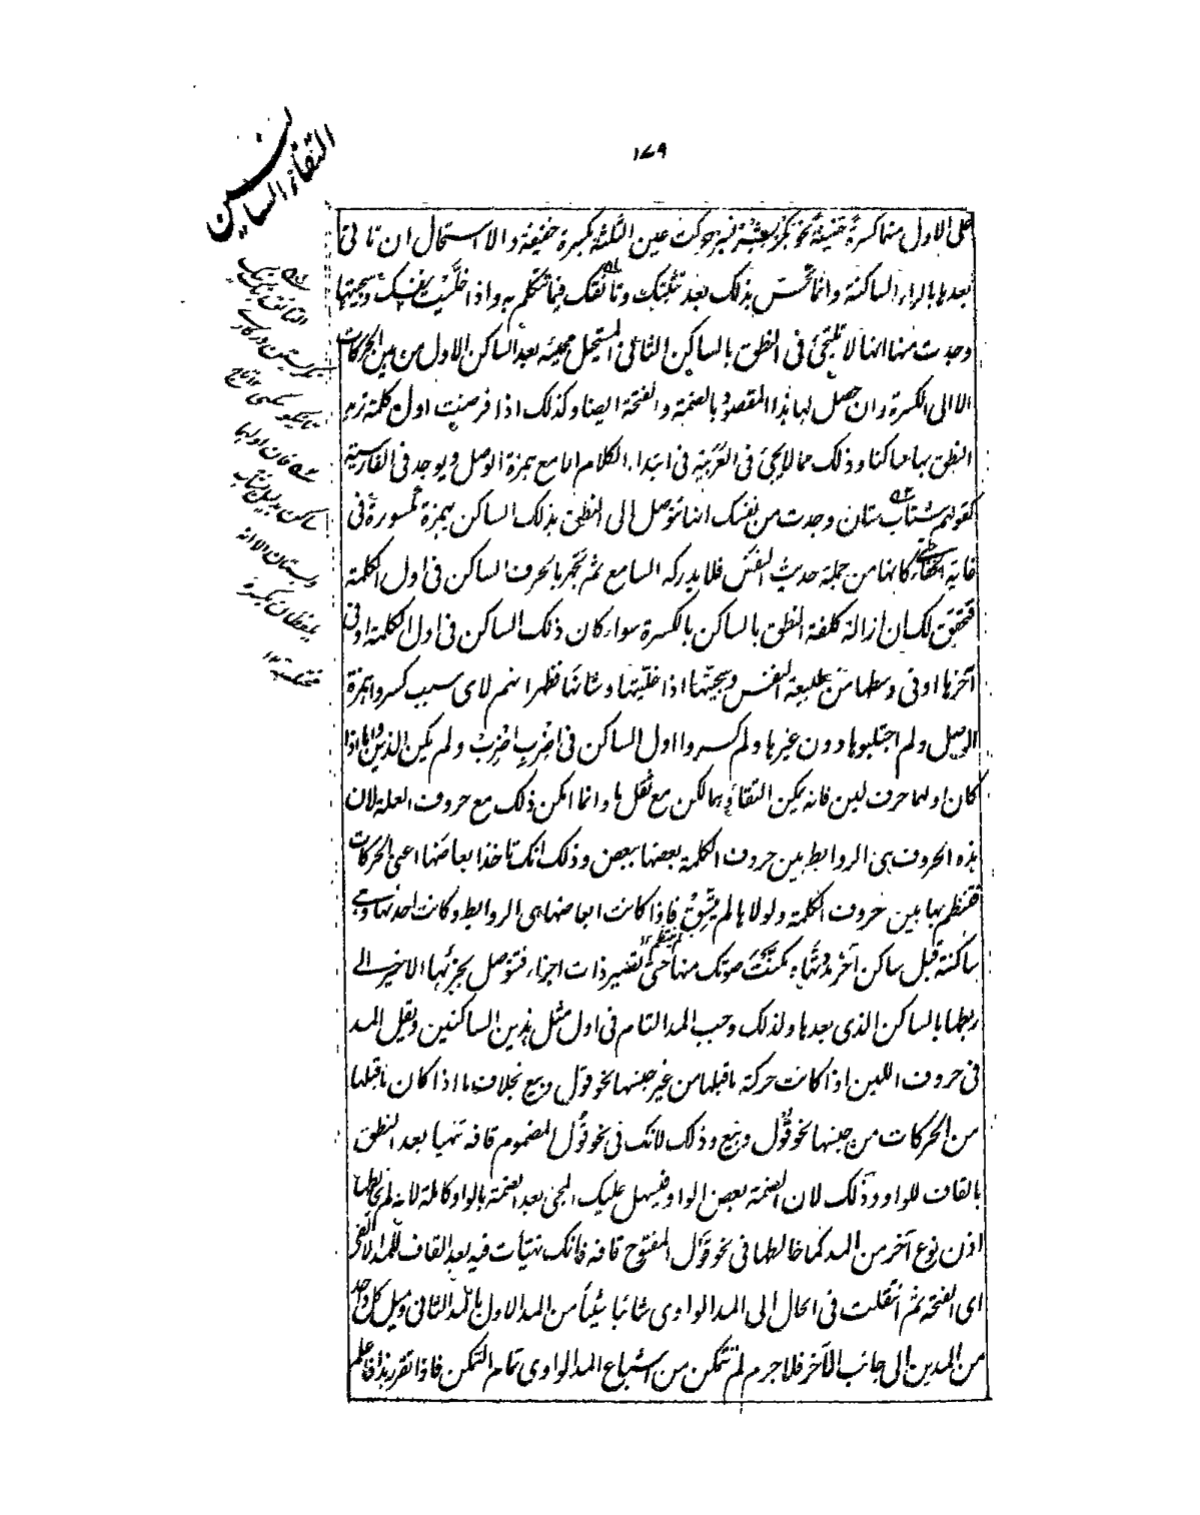 ١٧٩
التقاء الساكنين
على الاول منهما كسرة خفيفة نحو بكر بشر بسر حركت عين الثلثة بكسرة خفيفة والا استحال ان تاتى
بعدها بالراء الساكنة وانما تحس بذلك بعد تثبتك وتأنقك فيما تتكلم به واذا خليت نفسك وسجيتها
وجدت منها انها لا تلتجئ فى النطق بالساكن الثانى المستحيل مجيئه بعد الساكن الاول من بين الحركات
الا الى الكسرة وان حصل لها هذا المقصود بالضمة والفتحة ايضا وكذلك اذا فرضت اول كلمة تريد
النطق بها ساكنا وذلك مما لا يجئ فى العربية فى ابتداء الكلام الا مع همزة الوصل ويوجد فى الفارسية
كقولهم شتاب ستان وجدت من نفسك انها تتوصل الى النطق بذلك الساكن بهمزة مكسورة فى
غاية الخفاء كانها من جملة حديث النفس فلا يدركه السامع ثم تجهر بالحرف الساكن فى اول الكلمة
فتحقق لك ان ازالة كلفة النطق بالساكن بالكسرة سواء كان ذلك الساكن فى اول الكلمة او فى
آخرها او فى وسطها من طبيعة النفس وسجيتها اذا خليتها وشانها فظهر انهم لاى سبب كسروا همزة
الوصل ولم اجتلبوها دون غيرها ولم كسروا اول الساكن فى اضرب اضرب ولم يكن الذين واما اذا
كان اولهما حرف لين فانه يمكن التقاؤهما لكن مع ثقل ما وانما امكن ذلك مع حروف العلة لان
هذه الحروف هى الروابط بين حروف الكلمة بعضها ببعض وذلك انك تاخذ ابعاضها اعنى الحركات
فتنظم بها بين حروف الكلمة ولولاها لم يتسق فاذا كانت ابعاضها هى الروابط وكانت احدها وهى
ساكنة قبل ساكن آخر مددتها ومكنت صوتك منها حتى تصير ذات اجزاء فتوصل بجزئها الاخير الى
ربطها بالساكن الذى بعدها ولذلك وجب المد التام فى اول مثل هذين الساكنين ويقل المد
فى حروف اللين اذا كانت حركة ما قبلها من غير جنسها نحو قول وبيع بخلاف ما اذا كان ما قبلها
من الحركات من جنسها نحو قول وبيع وذلك لانك فى نحو قول المضموم قافه تتهيأ بعد النطق
بالقاف للواو وذلك لان الضمة بعض الواو فيسهل عليك المجئ بعد الضمة بالواو كاملة لانه لم يخالطها
اذن نوع آخر من المد كما خالطها فى نحو قول المفتوح قافه فانك تهيأت فيه بعد القاف للمد الالفى
اى الفتحة ثم انتقلت فى الحال الى المد الواوى شائبا شيئا من المد الاول بالمد الثانى وميل كل واحد
من المدين الى جانب الآخر فلا جرم لم تتمكن من اشباع المد الواوى تمام التمكن فاذا تقرر هذا فاعلم